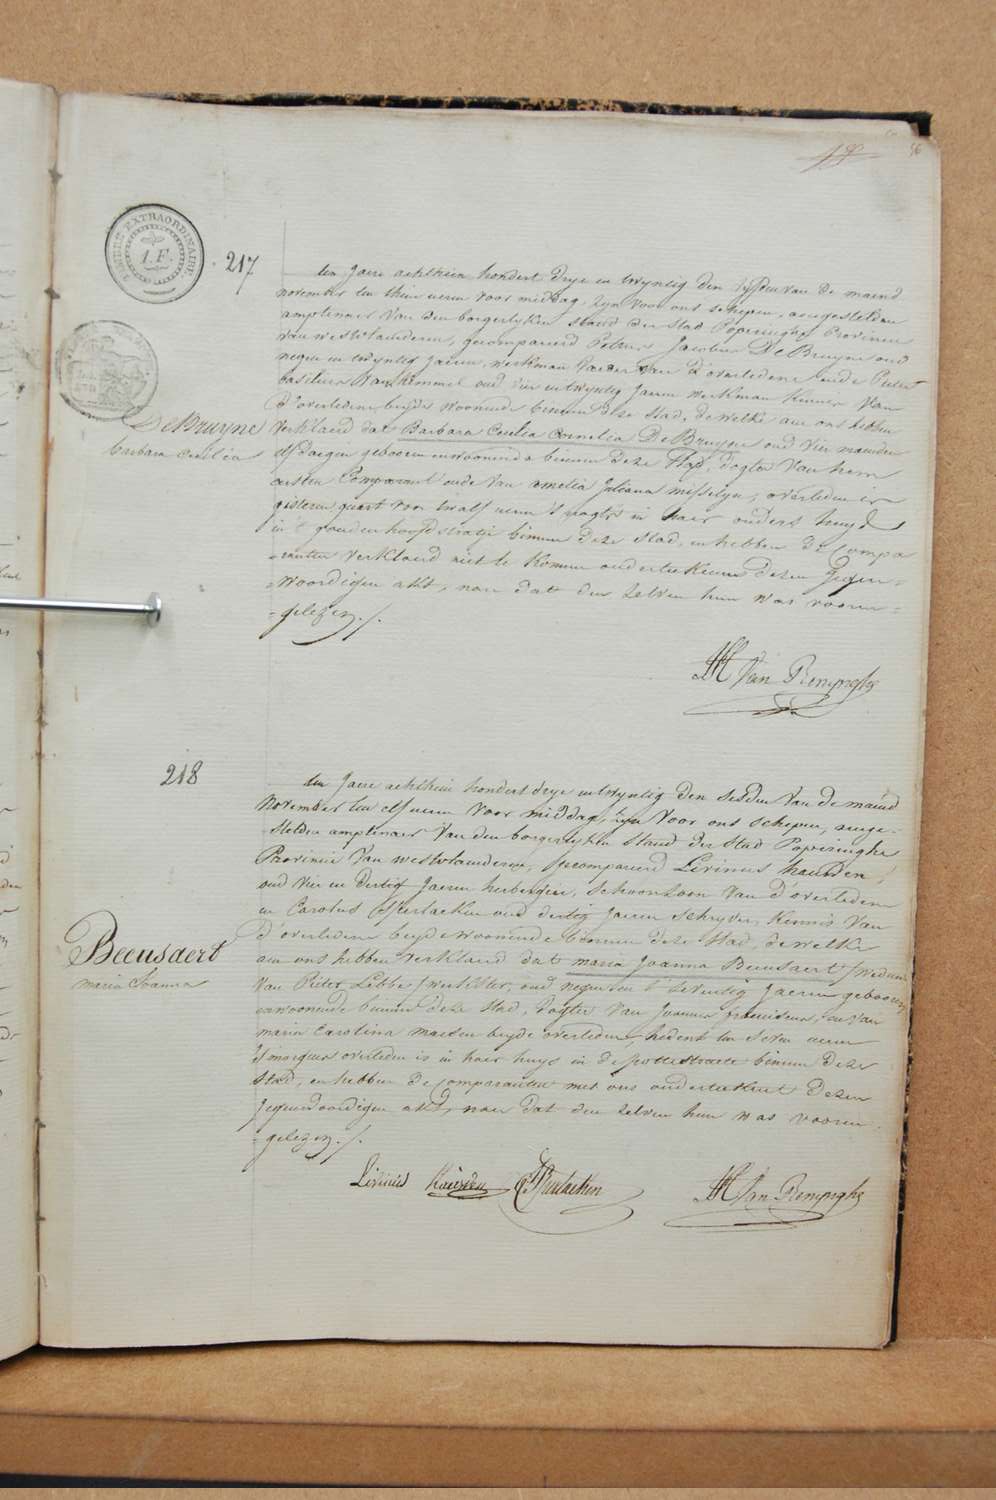 56
TIMBRE EXTRAORDINAIRE
1.F.
217
den Jaere achthien hondert drye en twyntig den vyfden van de maend
november ten thien ueren voor middag, zyn voor ons schepen, aengestelden
amptenaer van den borgerlyken stand der stad Poperinghe Provincie
van westvlaenderen, gecompareerd Petrus Jacobus De Bruyne oud
negen en twyntig jaeren, werkman vaeder van d'overledene ende Pieter
basilius Vanhemmel oud vier en twyntig Jaeren werkman kennis van
d'overledene beyde woonende binnen deze stad, de welke aen ons hebben
verklaerd dat Barbara Cecilia Cornelia De Bruyne oud vier maenden
elf daegen gebooren en woonende binnen deze stad, dogter van hem
eersten Comparant ende van amelia Juliana misselyn, overleden is
gisteren quart voor twalf ueren 's nagts in haer ouders huys
in 't gouden hoofd straetje binnen deze stad, en hebben de Compa
ranten verklaerd niet te konnen onderteekenen dezen Tegen=
=woordigen akt, naer dat den zelven hun was vooren=
=gelezen./.
De Bruyne
barbara Cecilia
Van Renynghe
218
den Jaere achthien hondert drye en twyntig den sesden van de maend
November ten elf ueren voor middag, zyn voor ons schepen, aenge=
=stelden amptenaer van den borgerlyken stand der stad Poperinghe
Provincie van westvlaenderen, gecompareerd Livinus
oud vier en dertig Jaeren herbergier, schoonzoon van d'overledene
en Carolus oud dertig Jaeren schryver, kennis van
d'overledene beyde woonende binnen deze stad, de welke
aen ons hebben verklaerd dat maria Joanna Beeusaert /weduwe
van Pieter Lebbe / werkster, oud negen en 't seventig Jaeren gebooren
en woonende binnen deze stad, dogter van Joannes en van
maria Carolina maerten beyde overleden, hedent ten seven ueren
's morgens overleden is in haer huys in de pottestraete binnen deze
stad, en hebben de Comparanten met ons onderteekent dezen
Tegenwoordigen akt, naer dat den zelven hun was vooren=
=gelezen./.
Beeusaert
maria Joanna
Livinus
Van Renynghe